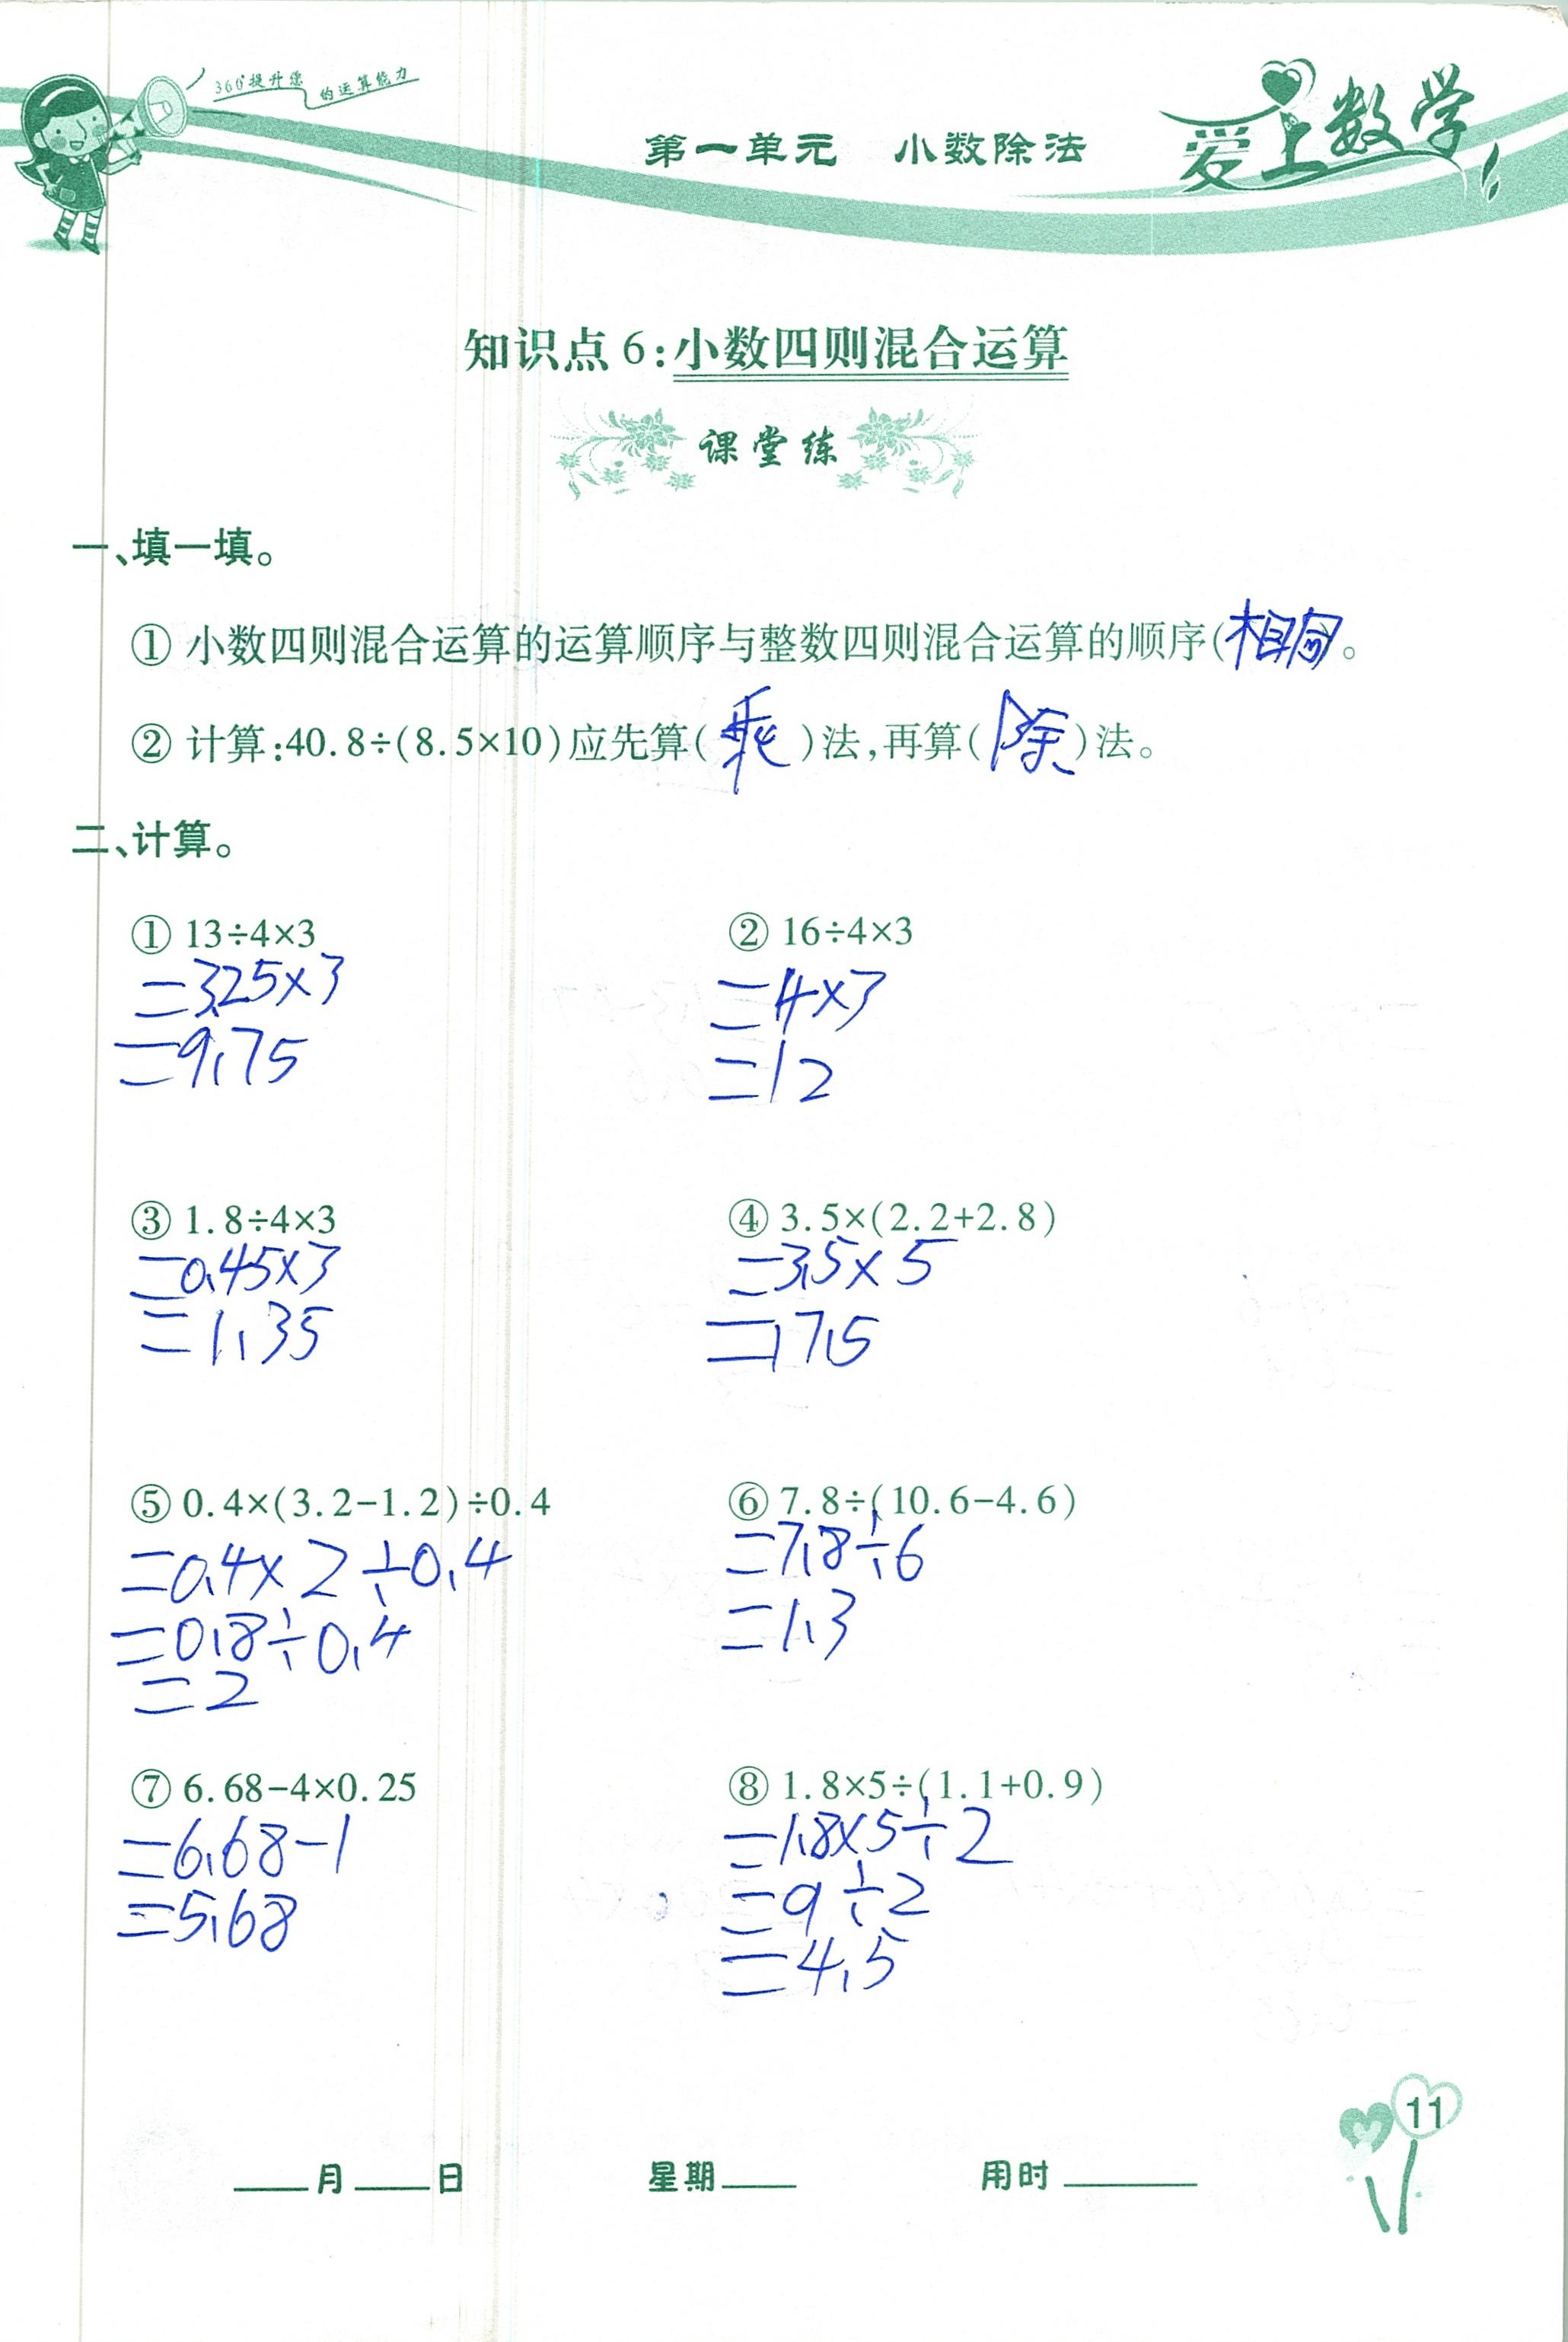 360°提升您的运算能力
第一单元 小数除法
爱上数学
知识点6:小数四则混合运算
课堂练
一、填一填。
① 小数四则混合运算的运算顺序与整数四则混合运算的顺序(相同。
② 计算:40.8÷(8.5×10)应先算(乘)法,再算(除)法。
二、计算。
① 13÷4×3
=3.25×3
=9.75
② 16÷4×3
=4×3
=12
③ 1.8÷4×3
=0.45×3
=1.35
④ 3.5×(2.2+2.8)
=3.5×5
=17.5
⑤ 0.4×(3.2-1.2)÷0.4
=0.4×2÷0.4
=0.8÷0.4
=2
⑥ 7.8÷(10.6-4.6)
=7.8÷6
=1.3
⑦ 6.68-4×0.25
=6.68-1
=5.68
⑧ 1.8×5÷(1.1+0.9)
=1.8×5÷2
=9÷2
=4.5
11
____月____日 星期____ 用时______